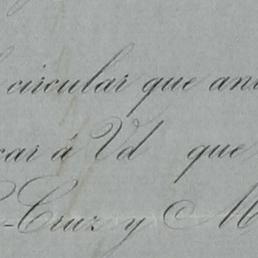 circular que an
car á Vd que
-Cruz y M